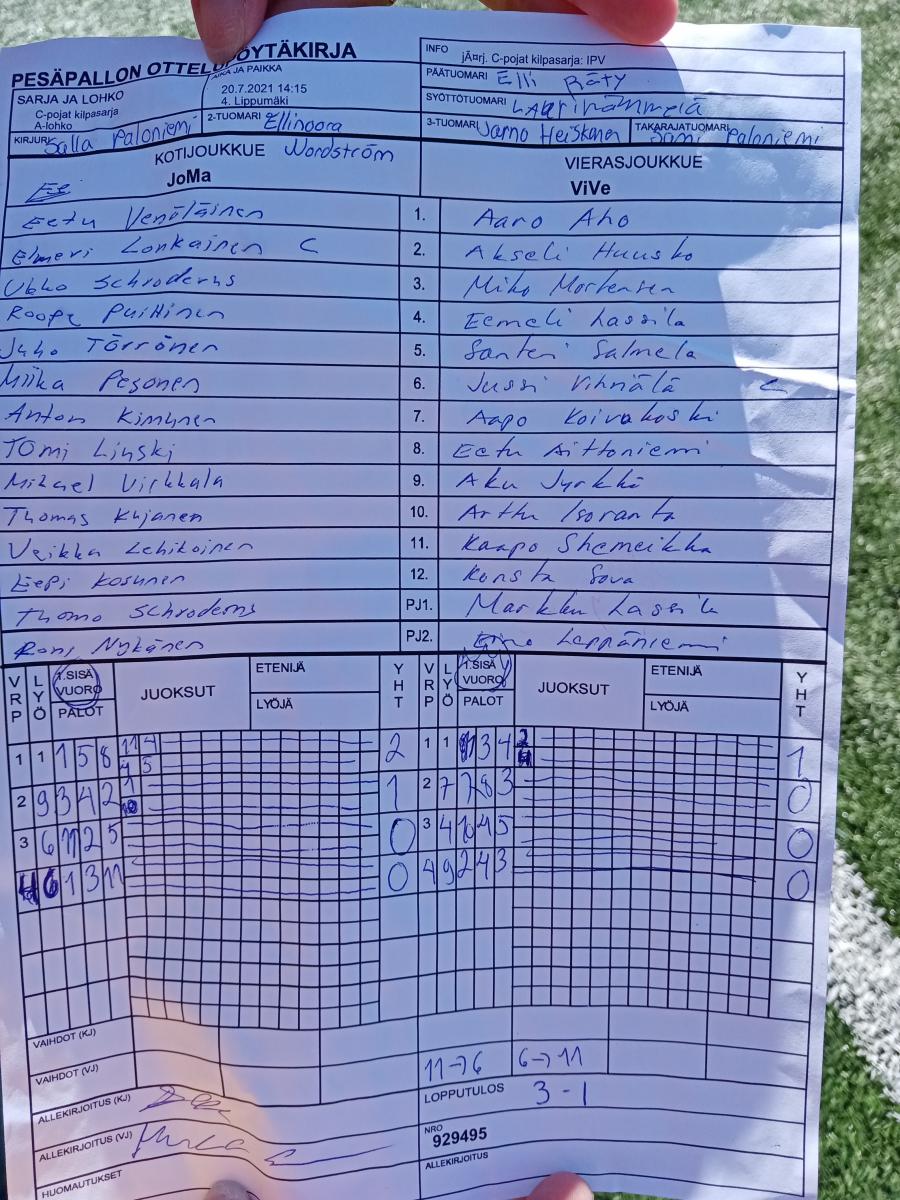 PESÄPALLON OTTELUPÖYTÄKIRJA
SARJA JA LOHKO
C-pojat kilpasarja
A-lohko
AIKA JA PAIKKA
20.7.2021 14:15
4. Lippumäki
KIRJURI Salla Paloniemi
2-TUOMARI Ellinoora Nordström
INFO jÃ¤rj. C-pojat kilpasarja: IPV
PÄÄTUOMARI Elli Räty
SYÖTTÖTUOMARI
3-TUOMARI Jarno Heiskanen
TAKARAJATUOMARI Sami Paloniemi
KOTIJOUKKUE
JoMa
VIERASJOUKKUE
ViVe
Eetu Venäläinen 1. Aaro Aho
Elmeri Lonkainen C 2. Akseli Huusko
Ukko Schroderus 3. Miko Mortensen
Roope Puittinen 4. Eemeli Lassila
Juho Törrönen 5. Santeri Salmela
Miika Pesonen 6. Jussi Vihnälä C
Anton Kinnunen 7. Aapo Koivukoski
Tomi Linski 8. Eetu Aittoniemi
Mikael Virkkala 9. Aku Jyrkkä
Thomas Kujanen 10. Arttu Isoranta
Veikka Lehikoinen 11. Kaapo Shemeikka
Eepi Kosunen 12. Konsta Sova
Thomo Schroderus PJ1. Markku Lassila
Roni Nykänen PJ2. Leppäniemi
VRP LYÖ 1.SISÄ VUORO PALOT JUOKSUT ETENIJÄ LYÖJÄ YHT
VRP LYÖ 1.SISÄ VUORO PALOT JUOKSUT ETENIJÄ LYÖJÄ YHT
1 1 1 5 8 11 4 2 1 1 3 4 2 1
4 5
2 9 3 4 2 1 1 2 7 7 8 3 0
3 6 11 2 5 0 3 4 10 4 5 0
4 6 1 3 11 0 4 9 2 4 3 0
VAIHDOT (KJ)
VAIHDOT (VJ) 11→6 6→11
ALLEKIRJOITUS (KJ)
LOPPUTULOS 3-1
ALLEKIRJOITUS (VJ)
NRO
929495
HUOMAUTUKSET
ALLEKIRJOITUS